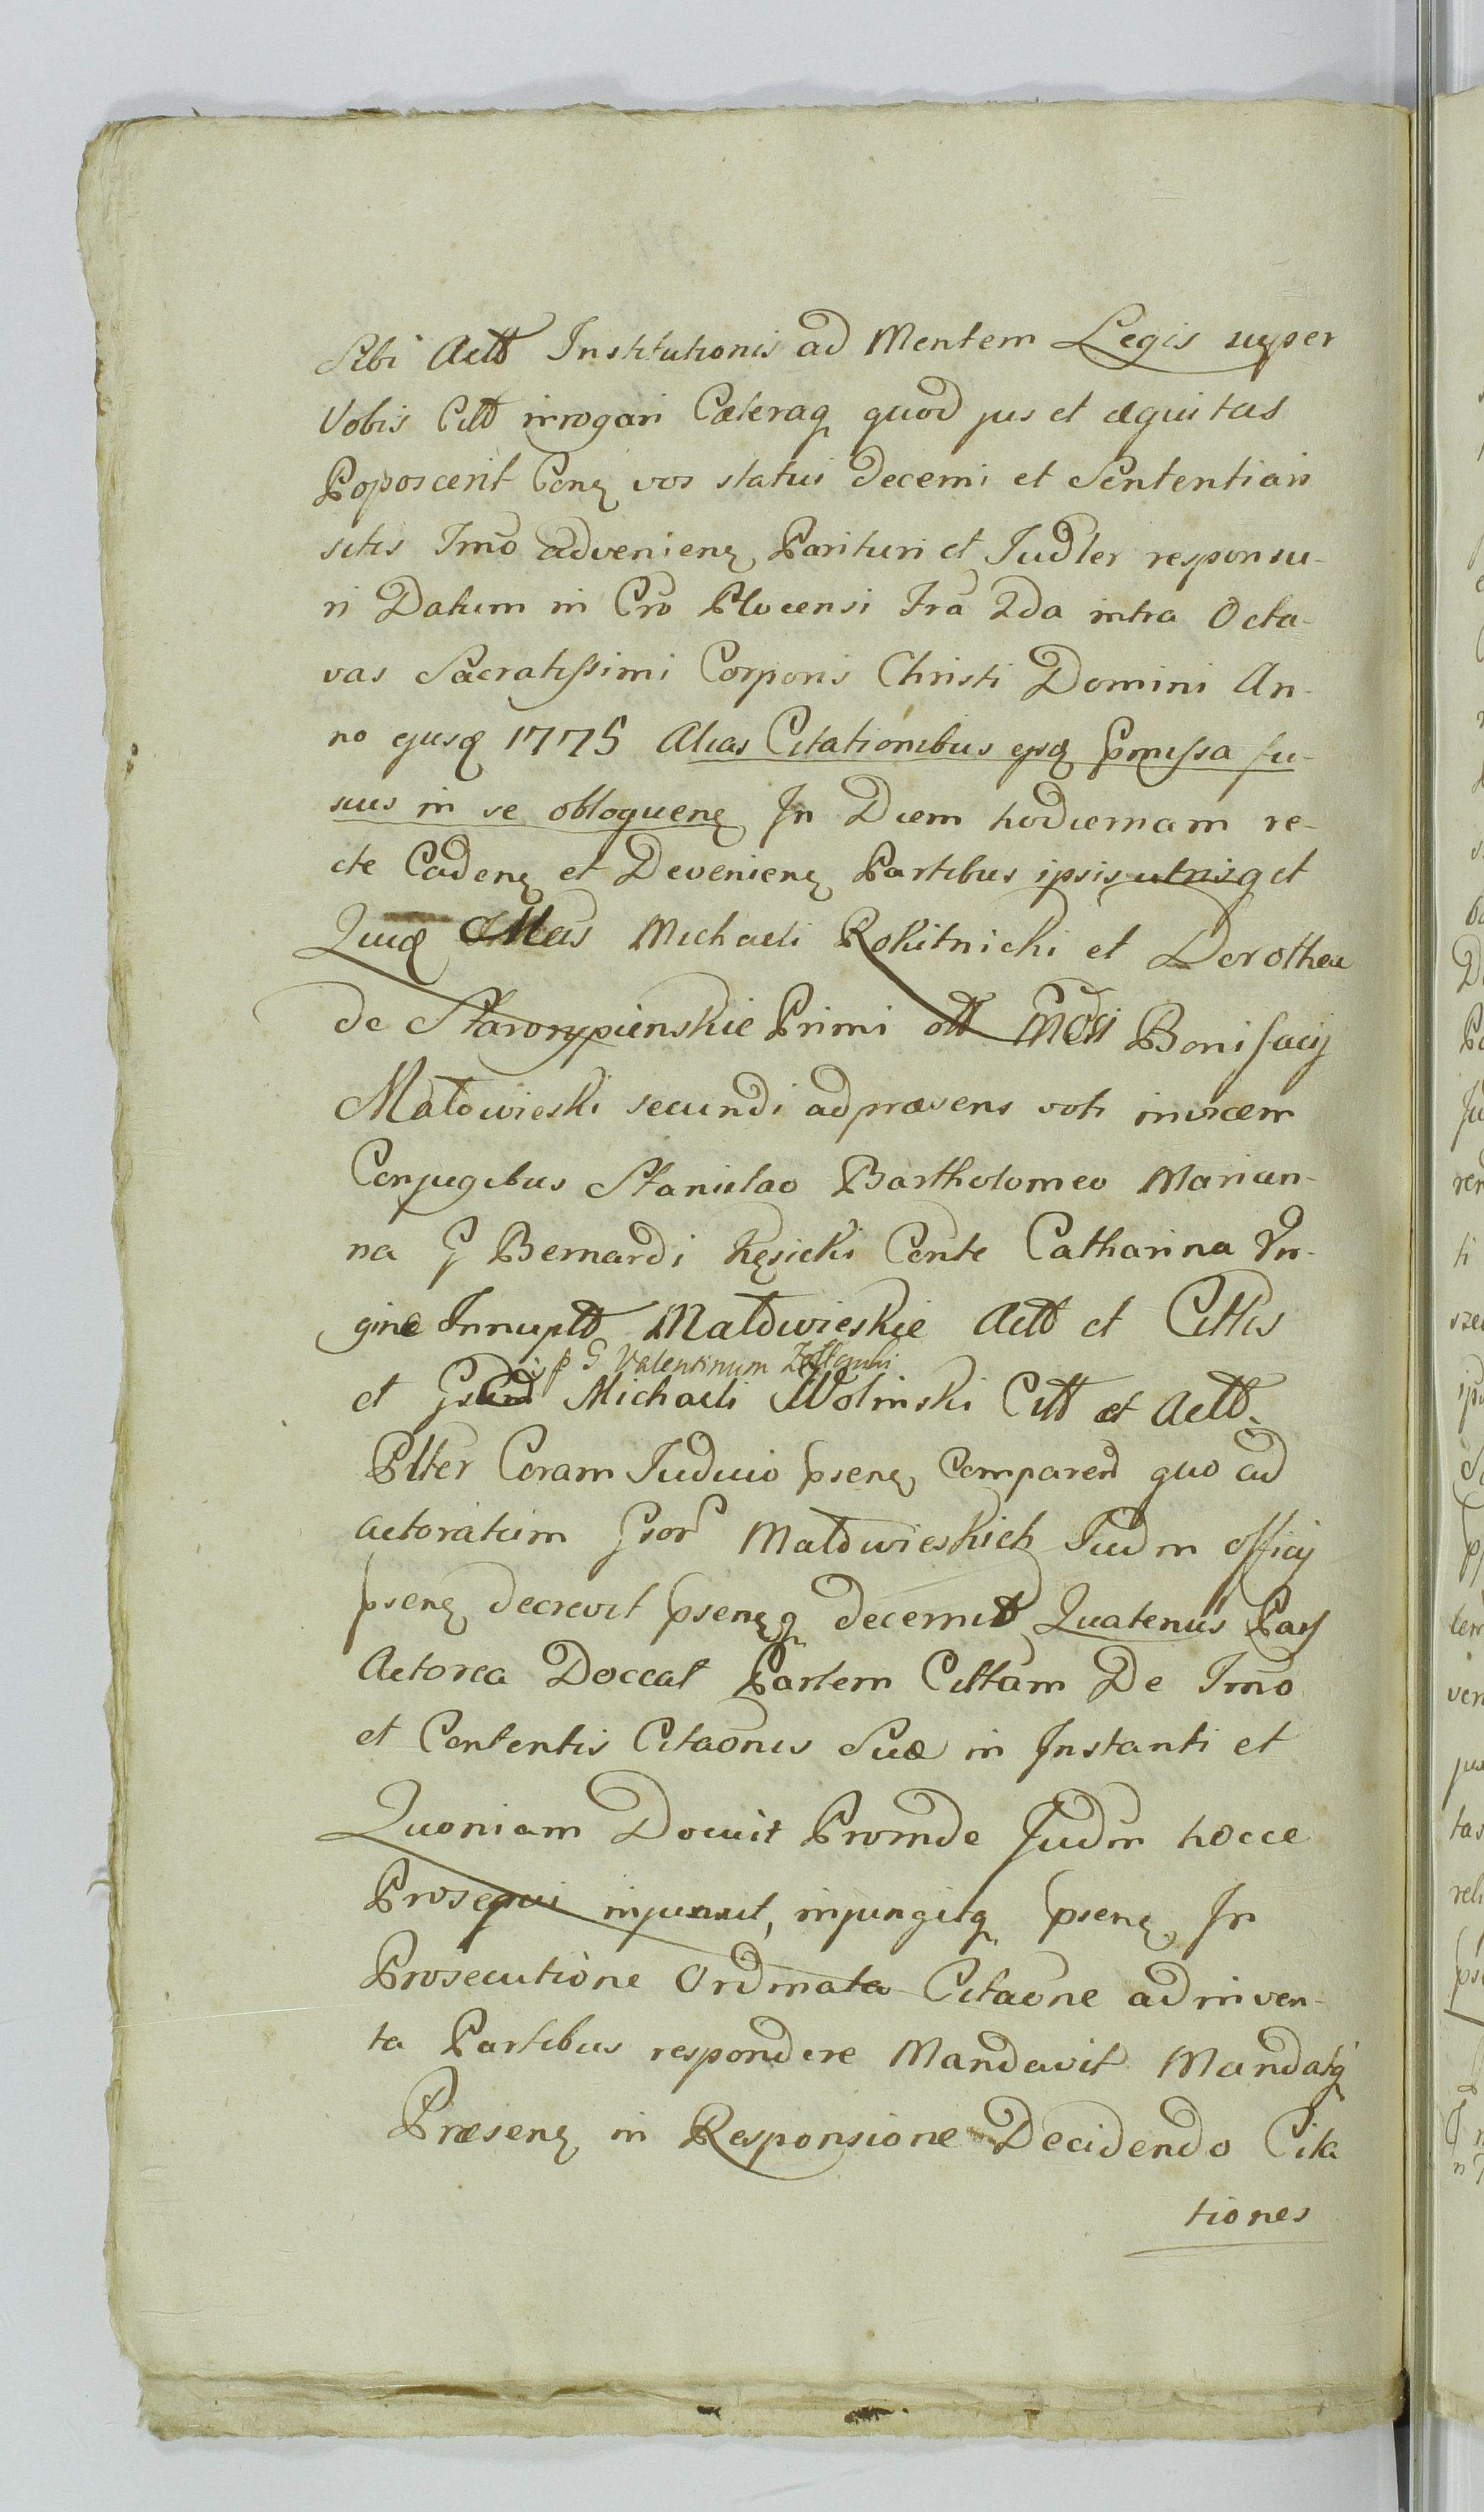 Sibi Actt Institutionis ad Mentem Legis super
Vobis Citt irrogari Cæteraq quod jus et æquitas
Poposcerit Conę vos statui decerni et Sententiari
sitis Imo advenienę Parituri et Judler responsu-
ri Datum in Cro Plocensi Fra 2da intra Octa-
vas Sacratissimi Corporis Christi Domini An-
no ejusq 1775 Alias Citationibus ejsq Pmissa fu-
sius in se obloquenę In Diem hodiernam re-
cte Cadenę et Devenienę Partibus ipsis utrisq et
Michaeli Rokitnicki et Dorothea
de Starorypienskie Primi ott Bonifacij
Małowieski secundi ad præsens voti invicem
Conjugibus Stanislao Bartholomeo Marian-
na G Bernardi Kęsicki Conte Catharina Vir-
gine Innuptt Małowieskie Actt et Cittis
p G Valentinum
et Michaeli Wolinski Citt et Actt
Plter Coram Judicio psenę Comparend quo ad
actoratum Gsor Małowieskich Judm officij
psenę decrevit psenęq decernit Quatenus Pars
Actorea Doceat Partem Cittam De Imo
et Contentis Citaonis Suæ in Instanti et
Quoniam Docuit Proinde Judm hocce
Prosequi injunxit, injungitq psenę In
Prosecutione Ordinata Citaone adinven-
ta Partibus respondere Mandavit Mandatq
Præsenę in Responsione Decidendo Cita
tiones